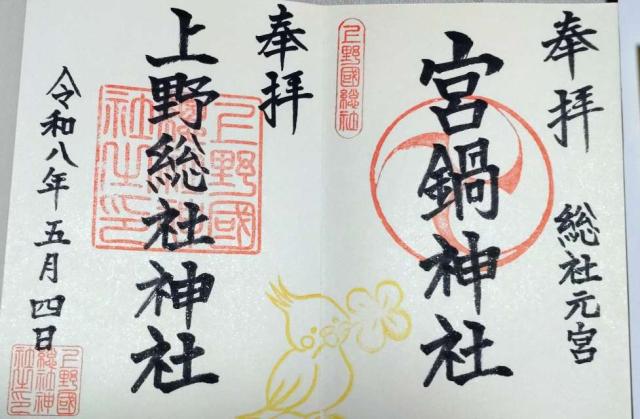 奉拝
総社元宮
宮鍋神社
上野國総社
奉拝
上野総社神社
上野國
総社神
社之印
令和八年五月四日
上野國
総社神
社之印